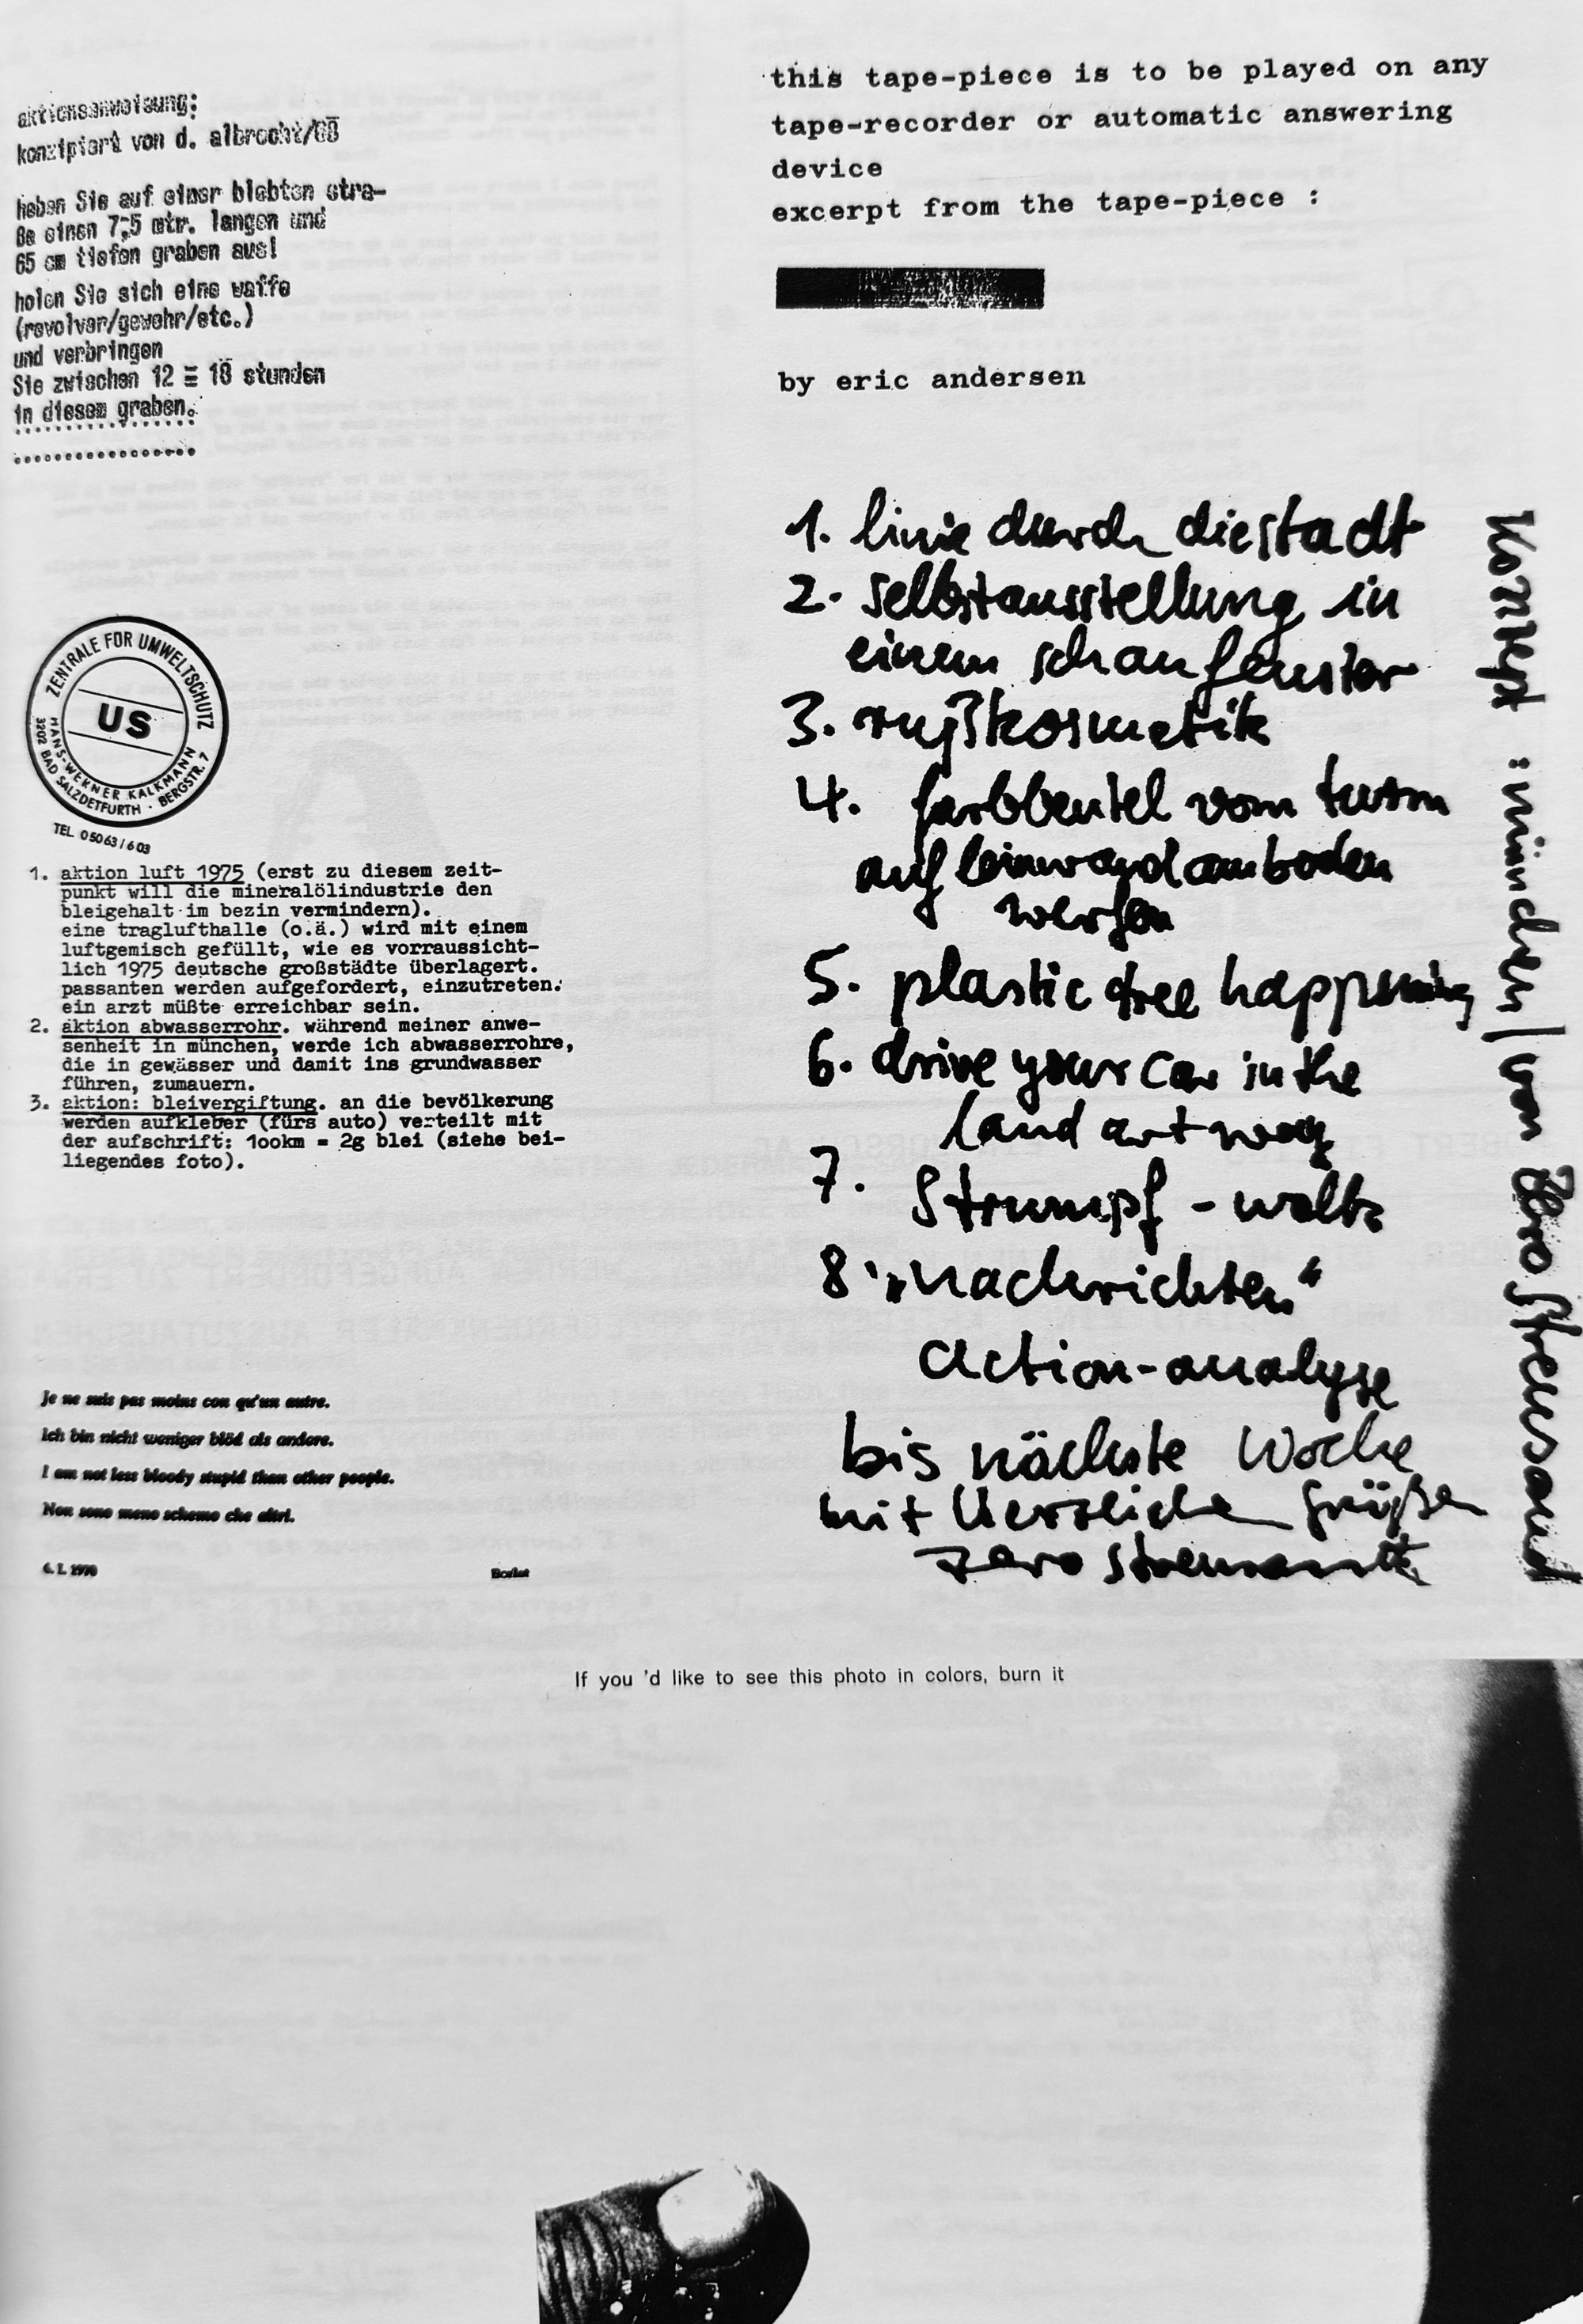 aktionsanweisung:
konzipiert von d. albrecht/68
heben Sie auf einer blebten stra-
ße einen 7,5 mtr. langen und
65 cm tiefen graben aus!
holen Sie sich eine waffe
(revolver/gewehr/etc.)
und verbringen
Sie zwischen 12 = 18 stunden
in diesem graben.
ZENTRALE FÜR UMWELTSCHUTZ
US
HANS-WERNER KALKMANN
3202 BAD SALZDETFURTH · BERGSTR. 7
TEL 05063/603
1. aktion luft 1975 (erst zu diesem zeit-
punkt will die mineralölindustrie den
bleigehalt im bezin vermindern).
eine traglufthalle (o.ä.) wird mit einem
luftgemisch gefüllt, wie es vorraussicht-
lich 1975 deutsche großstädte überlagert.
passanten werden aufgefordert, einzutreten.
ein arzt müßte erreichbar sein.
2. aktion abwasserrohr. während meiner anwe-
senheit in münchen, werde ich abwasserrohre,
die in gewässer und damit ins grundwasser
führen, zumauern.
3. aktion: bleivergiftung. an die bevölkerung
werden aufkleber (fürs auto) verteilt mit
der aufschrift: 1ookm = 2g blei (siehe bei-
liegendes foto).
Je ne suis pas moins con qu'un autre.
Ich bin nicht weniger blöd als andere.
I am not less bloody stupid than other people.
Non sono meno schemo che altri.
6. I. 1970
this tape-piece is to be played on any
tape-recorder or automatic answering
device
excerpt from the tape-piece :
by eric andersen
1. linie durch die stadt
2. selbstausstellung in
einem schaufenster
3. rußkosmetik
4. farbbeutel vom turm
auf leinwand am boden
werfen
5. plastic tree happening
6. drive your car in the
land art way
7. Strumpf - wolke
8. "nachrichten"
action-analyse
bis nächste Woche
mit Herzliche Grüße
zero
Konzept : münchen / von
If you 'd like to see this photo in colors, burn it